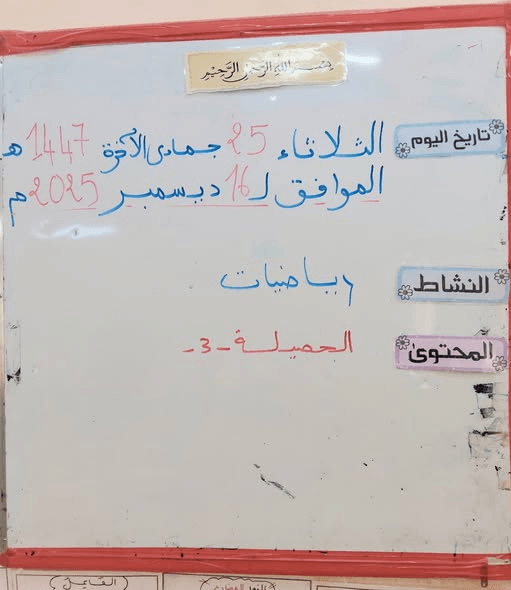 بسم الله الرحمن الرحيم
تاريخ اليوم الثلاثاء 25 جمادى الآخرة 1447 هـ
الموافق لـ 16 ديسمبر 2025 م
النشاط رياضيات
المحتوى الحصيلة -3-